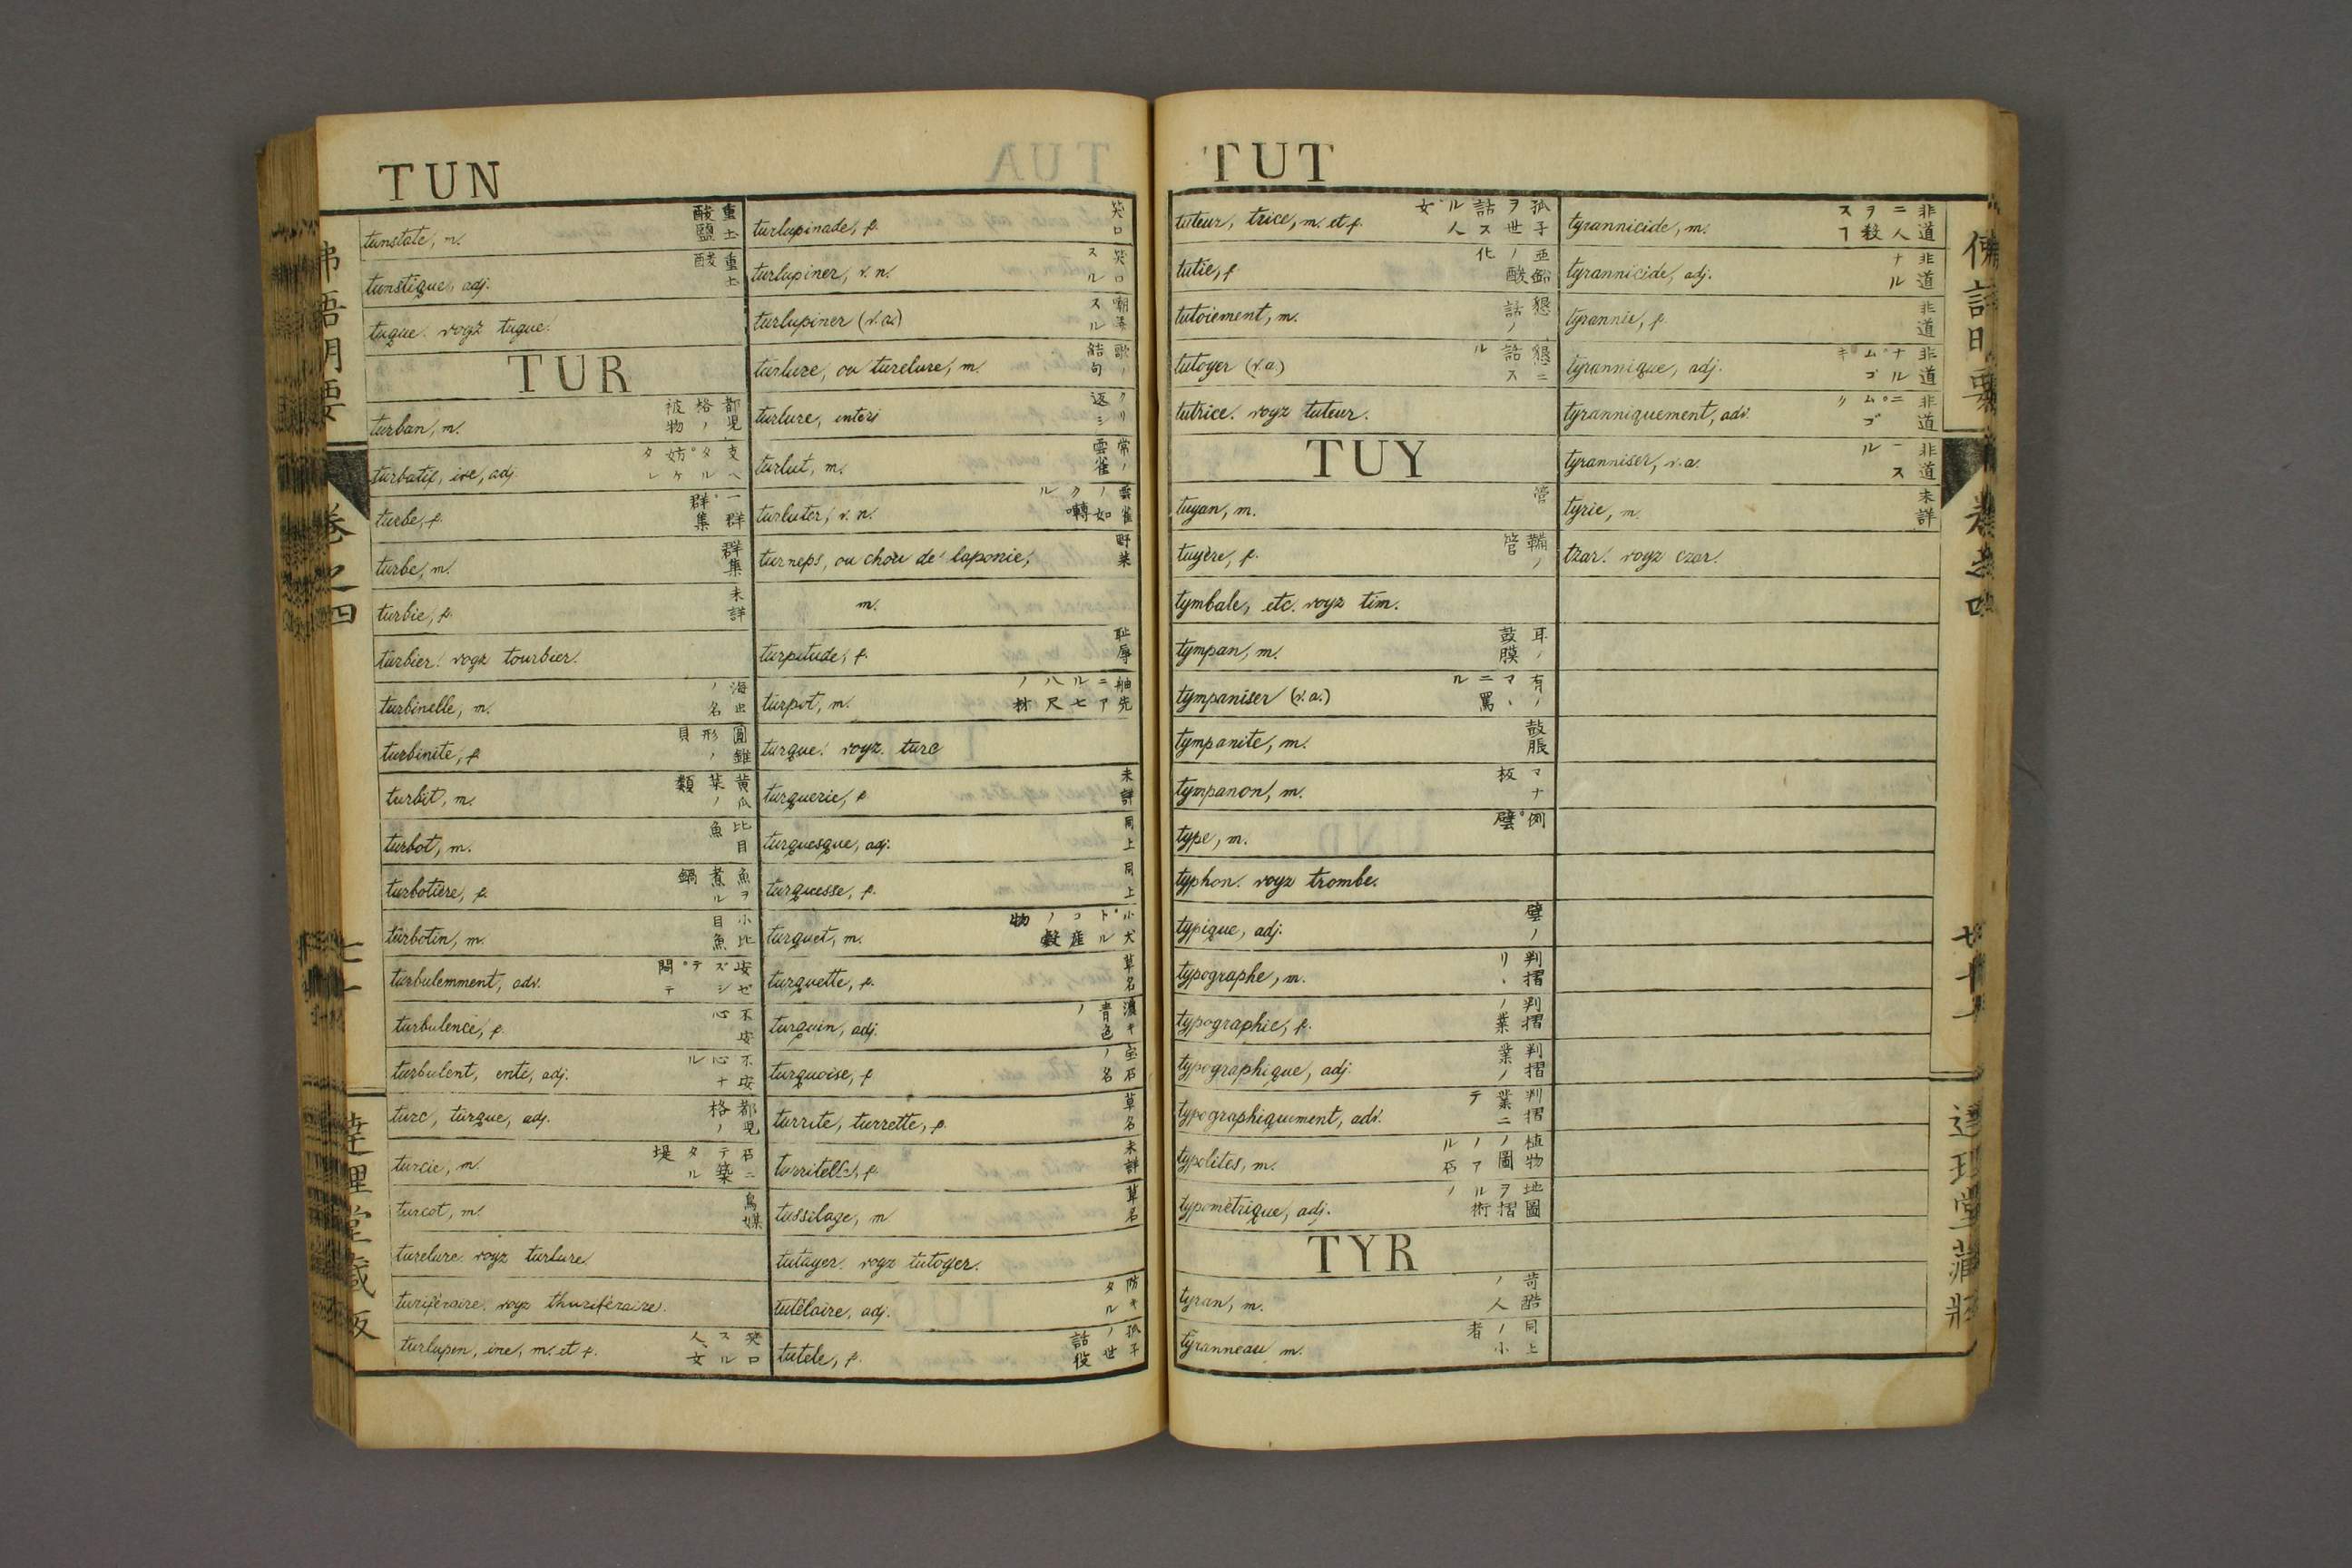 TUN
tunstate, m. 重土酸鹽
tunstique, adj. 重土酸
tuque. voyz tugue.
TUR
turban, m. 都児格ノ被物
turbatif, ive, adj. 支ヘタル゜妨ケタレ
turbe, f. 一群゜群集
turbe, m. 群集
turbie, f. 未詳
turbier. voyz tourbier.
turbinelle, m. 海虫ノ名
turbinite, f. 圓錐形ノ貝
turbit, m. 黄瓜菜ノ類
turbot, m. 比目魚
turbotière, f. 魚ヲ煮ル鍋
turbotin, m. 小比目魚
turbulemment, adv.
turbulence, f. 不安心
turbulent, ente, adj. 不安心ナル
turc, turque, adj. 都児格ノ
turcie, m. 石ニテ築タル堤
turcot, m. 鳥媒
turelure. voyz turlure.
turiféraire. voyz thuriféraire.
turlupin, ine, m. et f. 笑口スル人、女
turlupinade, f. 笑口
turlupiner, v. n. 笑口スル
turlupiner (v. a.) スル
turlure, ou turelure, m. 歌ノ結句
turlure, interj クリ返シ
turlut, m. 常ノ雲雀
turluter, v. n. 雲雀ノ如ク囀ル
turneps, ou chou de laponie,
m. 野菜
turpitude, f. 耻辱
turpot, m. 舳先ニアル七八尺ノ材
turque. voyz. turc
turquerie, f. 未詳
turquesque, adj. 同上
turquesse, f. 同上
turquet, m. 小犬゜トルコ産ノ穀物
turquette, f. 草名
turquin, adj. 濃キ青色ノ
turquoise, f. 宝石ノ名
turrite, turrette, f. 草名
turritelle, f. 未詳
tussilage, m 草名
tutayer. voyz tutoyer.
tutélaire, adj. 防キタル
tutele, f. 孤子ノ世話役
TUT
tuteur, trice, m. et f. 孤子ヲ世話スル人゜女
tutie, f 亜鉛ノ酸化
tutoiement, m. 懇ノ話
tutoyer (v. a.) 懇ニ話スル
tutrice. voyz tuteur.
TUY
tuyau, m. 管
tuyère, f. 鞴ノ管
tymbale, etc. voyz tim.
tympan, m. 耳ノ鼓膜
tympaniser (v. a.) 有ノマヽニ罵ル
tympanite, m. 鼓脹
tympanon, m. マナ板
type, m. 例゜譬
typhon. voyz trombe.
typique, adj. 譬ノ
typographe, m. 判摺リ、
typographie, f. 判摺ノ業
typographique, adj. 判摺業ノ
typographiquement, adv. 判摺業ニテ
typolites, m. 植物ノ圖ノアル石
typomètrique, adj. 地圖ヲ摺ル術ノ
TYR
tyran, m. 苛酷ノ人
tyranneau m. 同上ノ小者
tyrannicide, m. 非道ニ人ヲ殺ス
tyrannicide, adj. 非道ナル
tyrannie, f. 非道
tyrannique, adj. 非道ナル゜ムゴキ
tyranniquement, adv. 非道ニ゜ムゴリ
tyranniser, v. a. 非道ニスル
tyrie, m. 未詳
tzar. voyz czar.
佛語明要
卷之四
達理堂蔵版